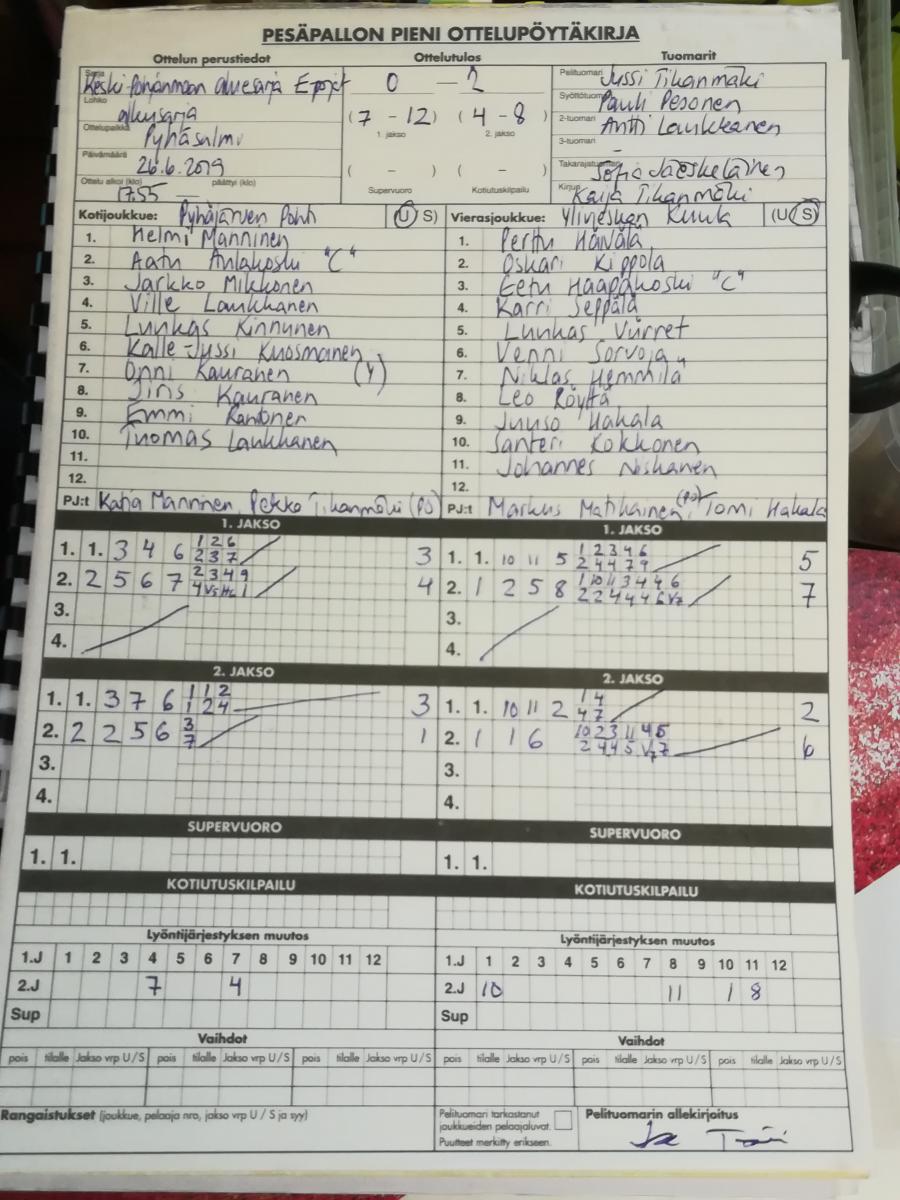 PESÄPALLON PIENI OTTELUPÖYTÄKIRJA
Ottelun perustiedot Ottelutulos Tuomarit
Sarja Keski-Pohjanmaan aluesarja E-pojat
Lohko alkusarja
Ottelupaikka Pyhäsalmi
Päivämäärä 26.6.2019
Ottelu alkoi (klo) 17.55 päättyi (klo) —
0 — 2
(7 - 12) (4 - 8)
1. jakso 2. jakso
( - ) ( - )
Supervuoro Kotiutuskilpailu
Pelituomari Jussi Tikanmäki
Syöttötuomari Pauli Pesonen
2-tuomari Antti Laukkanen
3-tuomari -
Takarajatuomari Sofia Jääskeläinen
Kirjuri Kaija Tikanmäki
Kotijoukkue: Pyhäjärven Pohti (U S)
1. Helmi Manninen
2. Aatu Ahlakoski "C"
3. Jarkko Mikkonen
4. Ville Laukkanen
5. Luukas Kinnunen
6. Kalle-Jussi Kuosmanen
7. Onni Kauranen (Y)
8. Iiris Kauranen
9. Emmi Rantonen
10. Tuomas Laukkanen
11.
12.
PJ:t Katja Manninen, Pekka Tikanmäki (PJ)
Vierasjoukkue: Ylivieskan Kuula (U S)
1. Perttu Häivälä
2. Oskari Kippola
3. Eetu Haapakoski "C"
4. Karri Seppälä
5. Luukas Vurret
6. Venni Sorvoja
7. Niklas Hemmilä
8. Leo Röyttä
9. Juuso Hakala
10. Santeri Kokkonen
11. Johannes Niskanen
12.
PJ:t Markus Matikainen (PJ), Tomi Hakala
1. JAKSO 1. JAKSO
1. 1. 3 4 6 1 2 6 3
2 3 7
2. 2 5 6 7 2 3 4 9 4
4 V5 H2 1
3.
4.
1. 1. 10 11 5 1 2 3 4 6 5
2 4 4 7 9
2. 1 2 5 8 1 10 11 3 4 4 6 7
2 2 4 4 4 6 V7
3.
4.
2. JAKSO 2. JAKSO
1. 1. 3 7 6 1 1 2 3
1 2 4
2. 2 2 5 6 3 1
7
3.
4.
1. 1. 10 11 2 1 4 2
4 7
2. 1 1 6 10 2 3 11 4 5 6
2 4 4 5 V7 7
3.
4.
SUPERVUORO SUPERVUORO
1. 1. 1. 1.
KOTIUTUSKILPAILU KOTIUTUSKILPAILU
Lyöntijärjestyksen muutos Lyöntijärjestyksen muutos
1.J 1 2 3 4 5 6 7 8 9 10 11 12 1.J 1 2 3 4 5 6 7 8 9 10 11 12
2.J 7 4 2.J 10 11 1 8
Sup Sup
Vaihdot Vaihdot
pois tilalle Jakso vrp U/S pois tilalle Jakso vrp U/S pois tilalle Jakso vrp U/S pois tilalle Jakso vrp U/S pois tilalle Jakso vrp U/S pois tilalle Jakso vrp U/S
Rangaistukset (joukkue, pelaaja nro, jakso vrp U / S ja syy)
Pelituomari tarkastanut
joukkueiden pelaajaluvat.
Puutteet merkitty erikseen.
Pelituomarin allekirjoitus